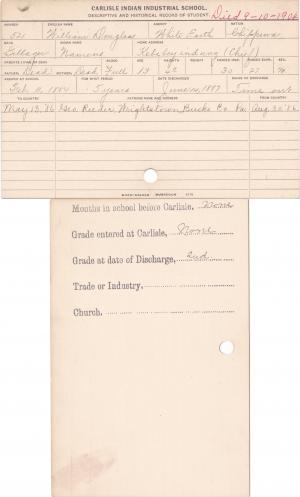 CARLISLE INDIAN INDUSTRIAL SCHOOL.
DESCRIPTIVE AND HISTORICAL RECORD OF STUDENT. Died 9-10-1906
NUMBER ENGLISH NAME AGENCY NATION
521 William Douglass White Earth Chippewa
BAND INDIAN NAME HOME ADDRESS
Pillager
PARENTS LIVING OR DEAD BLOOD AGE HEIGHT WEIGHT FORCED INSP. FORCED EXPR. SEX
Father Dead Mother Dead Full 13 30 27 M
ARRIVED AT SCHOOL FOR WHAT PERIOD DATE DISCHARGED CAUSE OF DISCHARGE
Feb. 11, 1884 5 years June 14, 1887 Time out
TO COUNTRY PATRONS NAME AND ADDRESS FROM COUNTRY
May 13, '86 Geo. Reeder, Wrightstown, Bucks Co. Pa. Aug. 30 '86
Months in school before Carlisle, None
Grade entered at Carlisle, None
Grade at date of Discharge, 2nd
Trade or Industry,
Church.